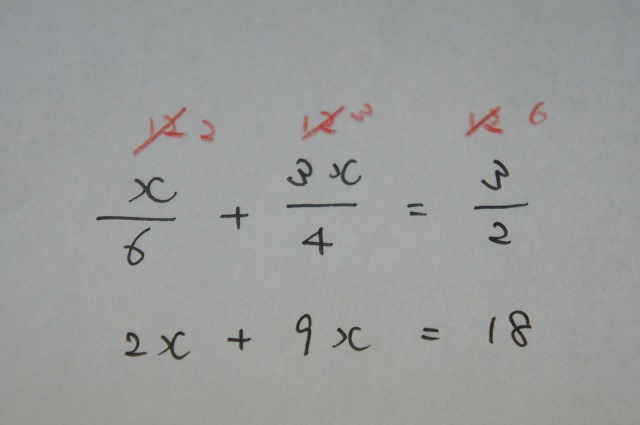 12 2 12 3 12 6
x/6 + 3x/4 = 3/2
2x + 9x = 18